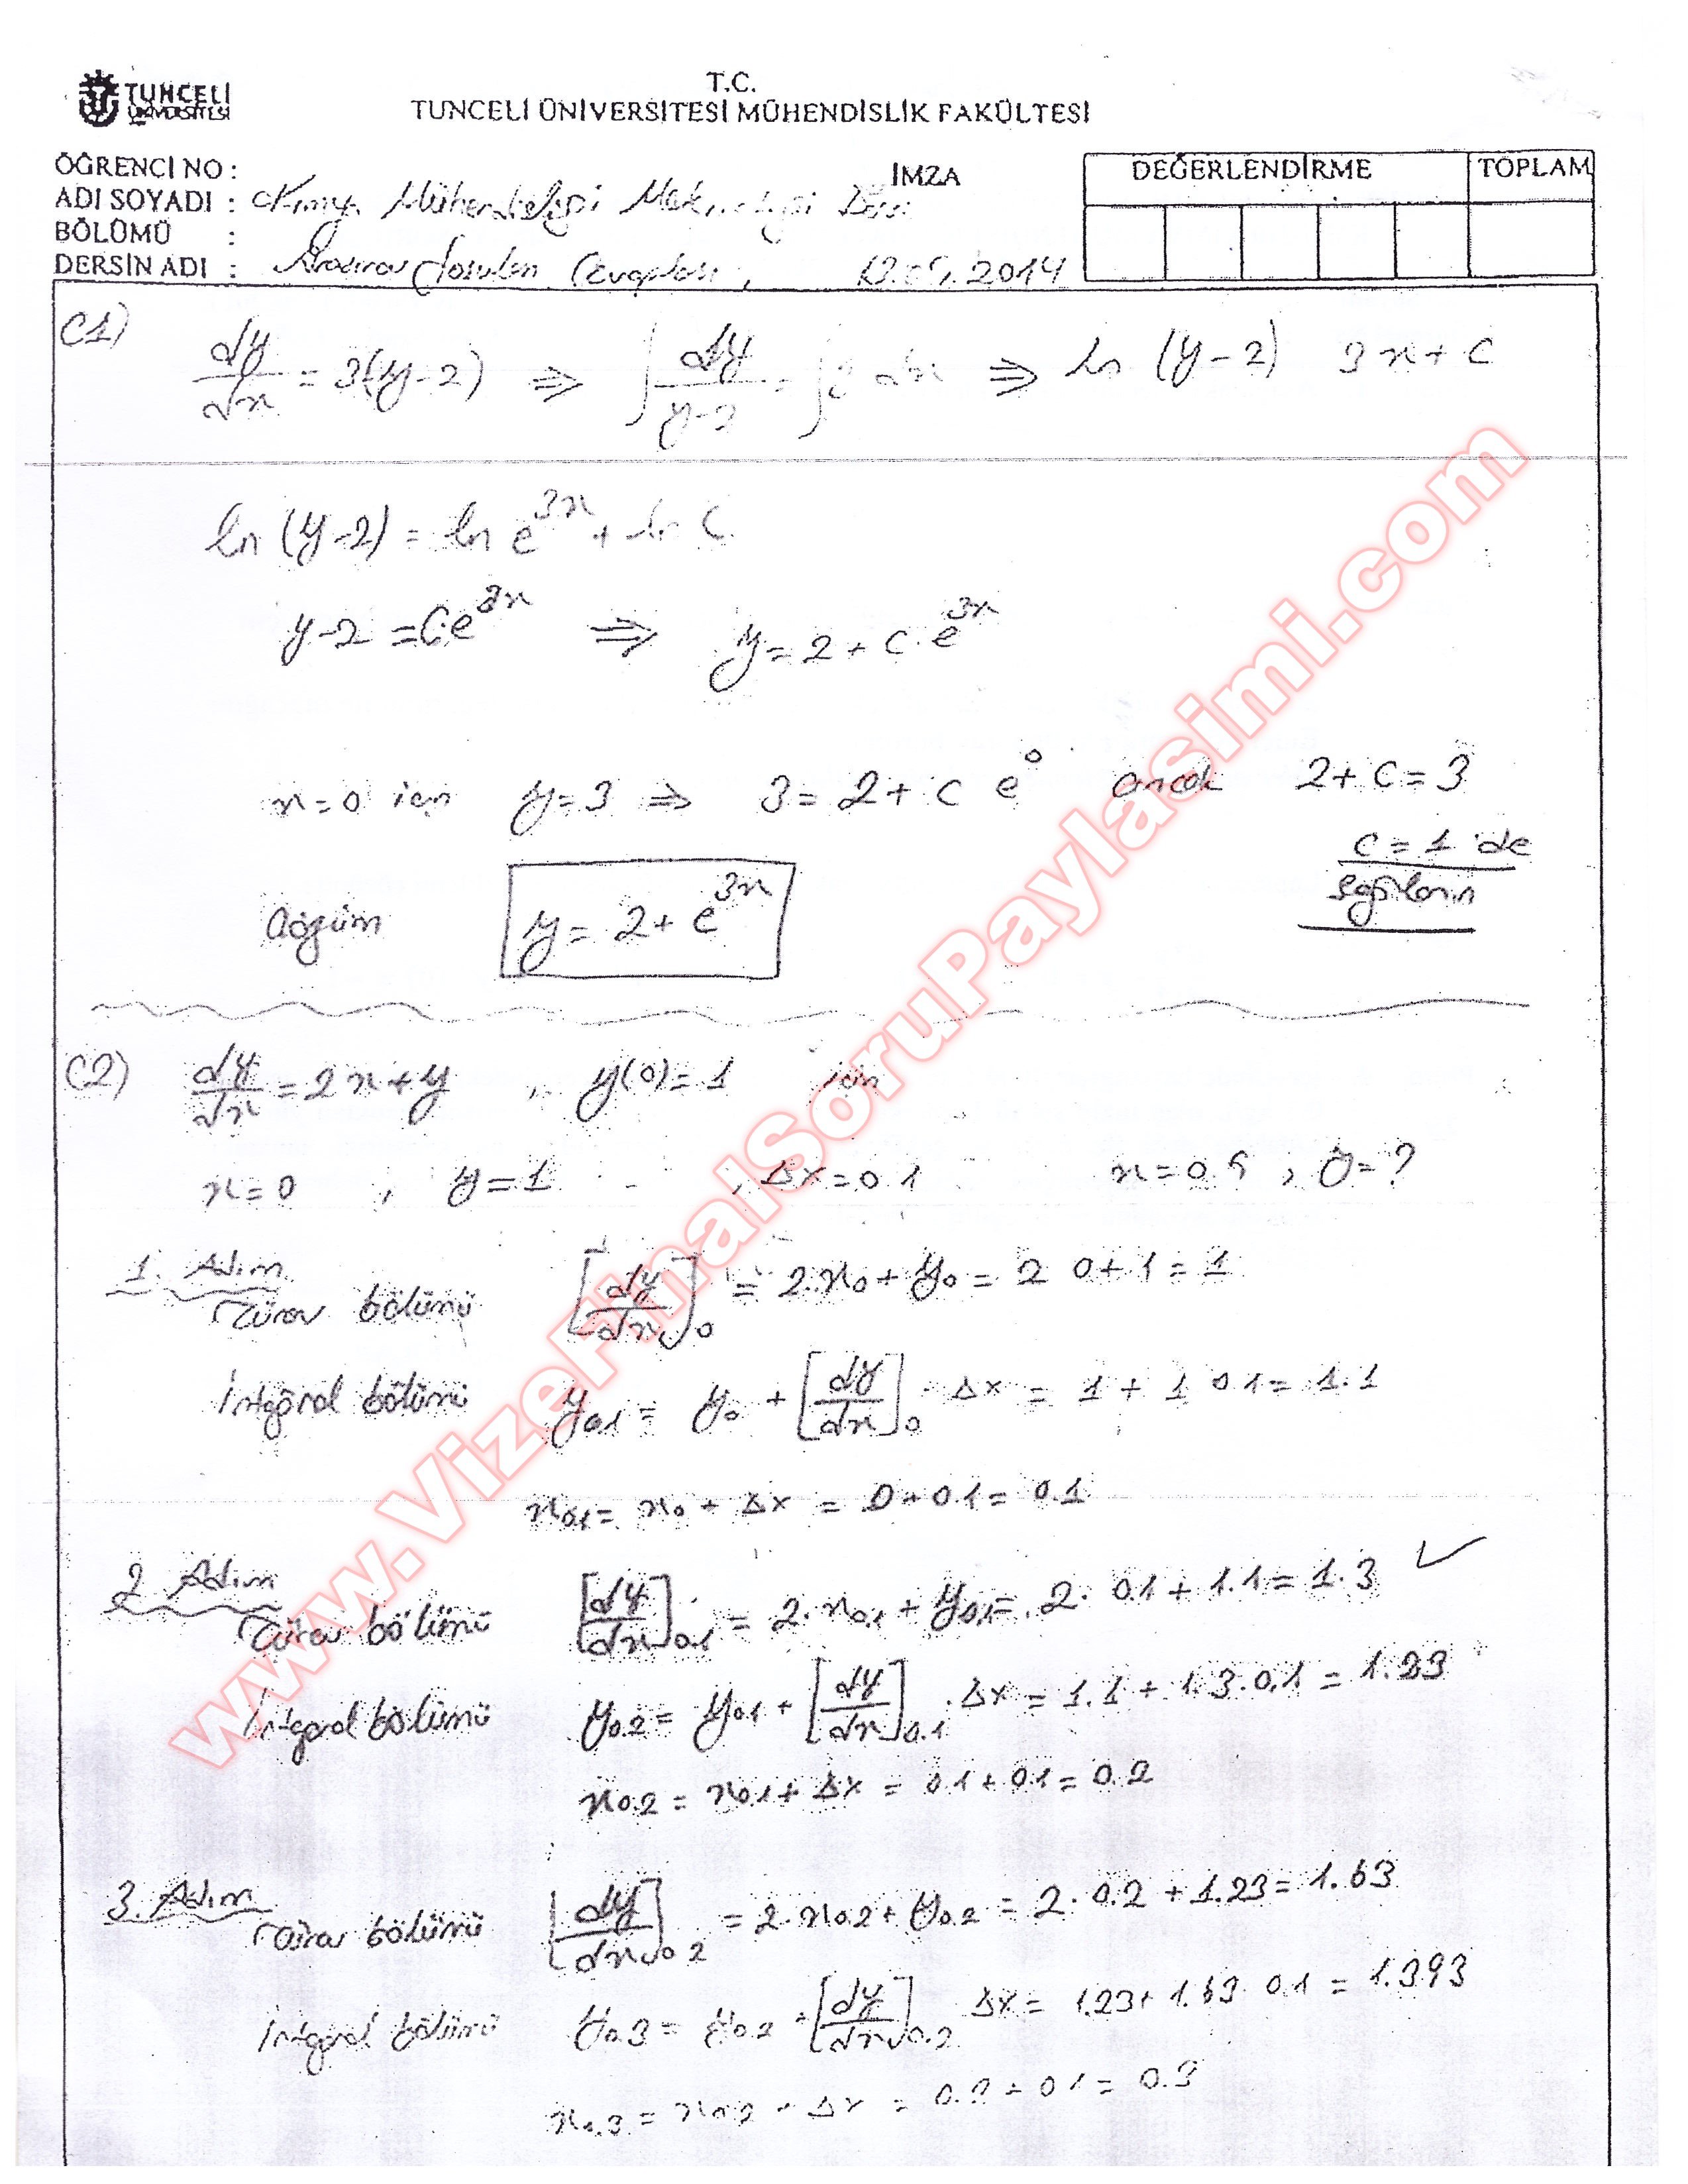 TUNCELİ
ÜNİVERSİTESİ
T.C.
TUNCELİ ÜNİVERSİTESİ MÜHENDİSLİK FAKÜLTESİ
ÖĞRENCİ NO :
İMZA
DEĞERLENDİRME TOPLAM
ADI SOYADI : Kimya Mühendisliği
BÖLÜMÜ :
DERSİN ADI : Arasınav Soruları Cevapları, 2014
C1)
dy/dx = 3(y-2) ⇒ ∫ dy/y-2 = ∫ 3 dx ⇒ ln (y-2) 3x + c
ln (y-2) = ln e^3x + ln C
y-2 = C.e^3x ⇒ y = 2 + c.e^3x
x=0 için y=3 ⇒ 3 = 2 + c e^0 2+c=3
c = 1 de
Çözüm y = 2 + e^3x
C2) dy/dx = 2x+y , y(0)=1 için
x=0 , y=1 , Δx=0.1 x=0.5 , y=?
1. Adım
Türev bölümü [dy/dx]0 = 2.x0 + y0 = 2 0+1 = 1
İntegral bölümü y0.1 = y0 + [dy/dx]0 . Δx = 1 + 1 0.1 = 1.1
x0.1 = x0 + Δx = 0+0.1 = 0.1
2. Adım
Türev bölümü [dy/dx]0.1 = 2.x0.1 + y0.1 = 2. 0.1 + 1.1 = 1.3 ✓
İntegral bölümü y0.2 = y0.1 + [dy/dx]0.1 . Δx = 1.1 + 1.3.0.1 = 1.23
x0.2 = x0.1 + Δx = 0.1 + 0.1 = 0.2
3. Adım
Türev bölümü [dy/dx]0.2 = 2.x0.2 + y0.2 = 2. 0.2 + 1.23 = 1.63
İntegral bölümü y0.3 = y0.2 + [dy/dx]0.2 Δx = 1.23 + 1.63 0.1 = 1.393
x0.3 = x0.2 + Δx = 0.2 + 0.1 = 0.3
www.VizeFinalSoruPaylasimi.com